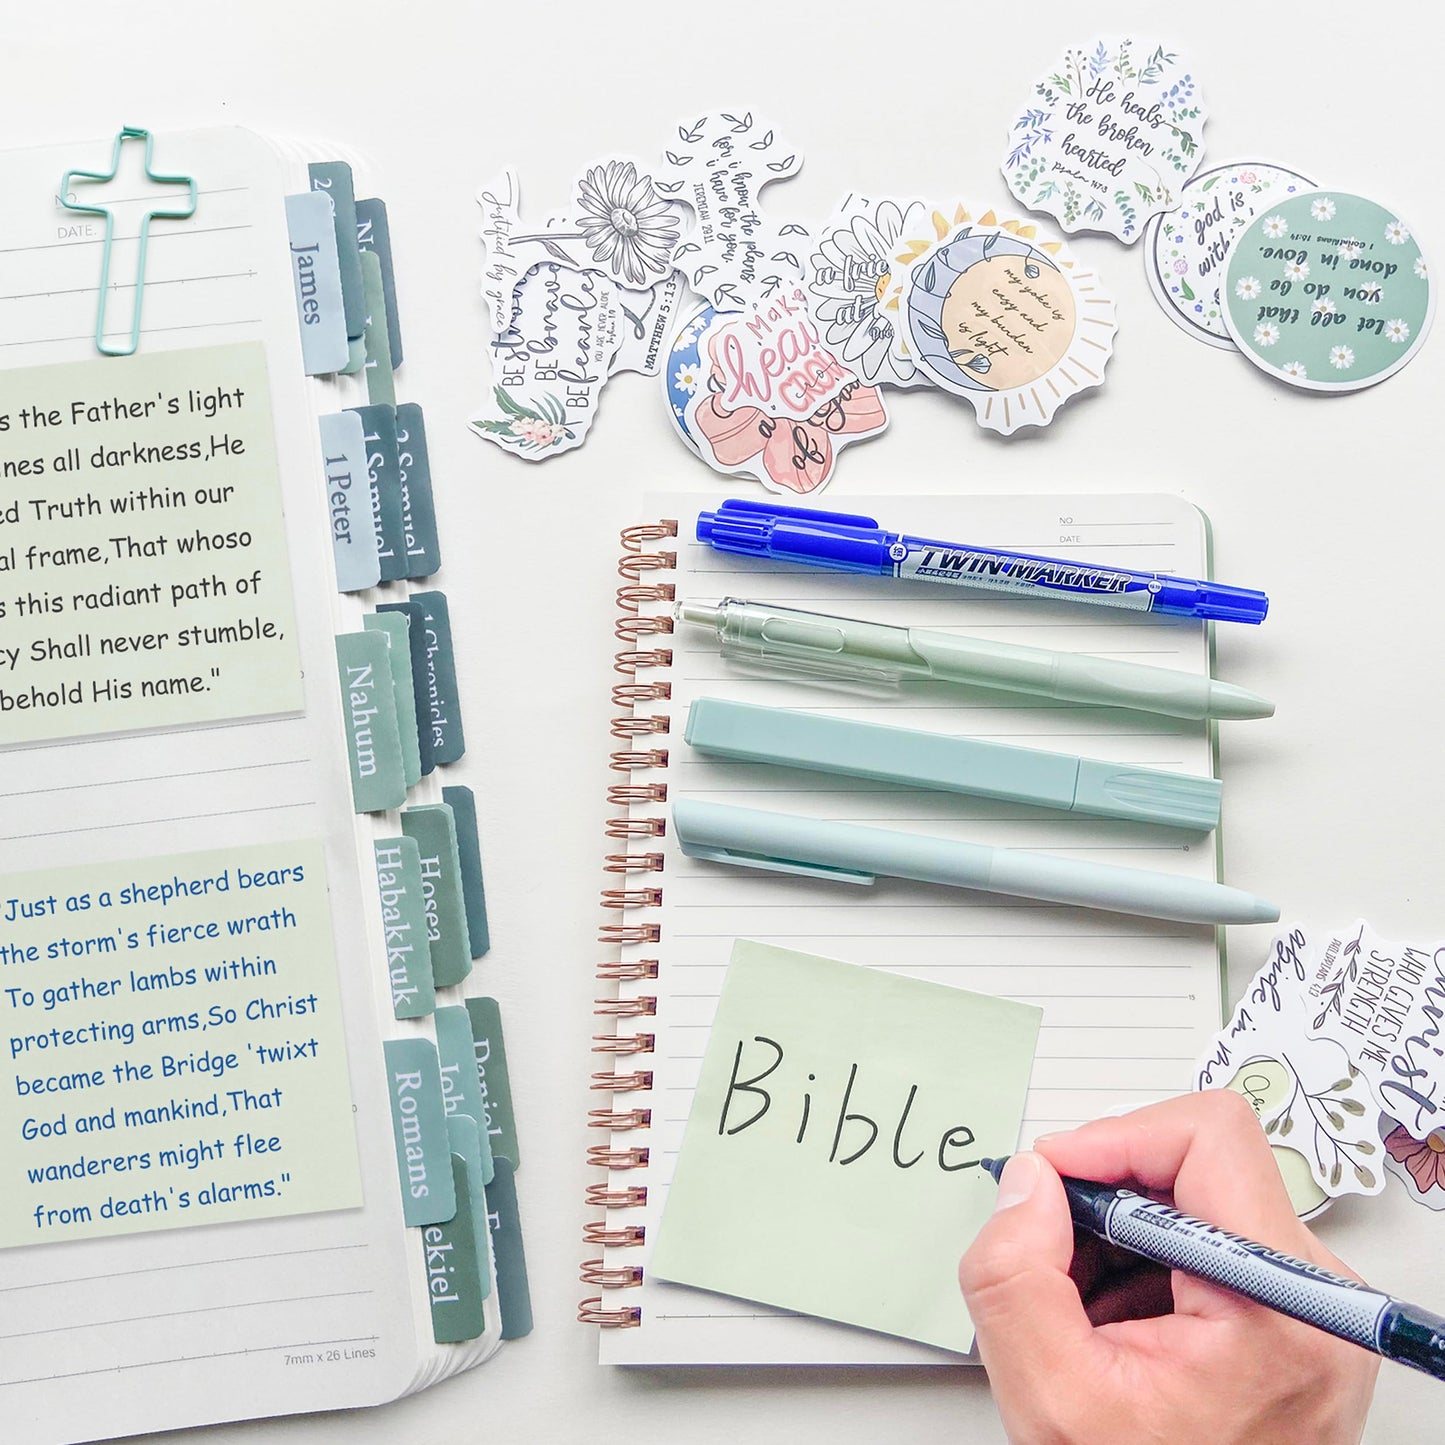 DATE.
s the Father's light
nes all darkness,He
ed Truth within our
al frame,That whoso
s this radiant path of
cy Shall never stumble,
behold His name."
"Just as a shepherd bears
the storm's fierce wrath
To gather lambs within
protecting arms,So Christ
became the Bridge 'twixt
God and mankind,That
wanderers might flee
from death's alarms."
7mm x 26 Lines
James
1 Peter
1 Samuel
2 Samuel
1 Chronicles
Nahum
Hosea
Habakkuk
Daniel
Job
Romans
ekiel
Justified by grace
BE STRONG
BE BRAVE
BE FEARLESS
YOU ARE NEVER ALONE
MATTHEW 5:13
for i know the plans
i have for you
JEREMIAH 29:11
my yoke is
easy and
my burden
is light
He heals
the broken
hearted
Psalm 147:3
god is
with
Let all that
you do be
done in love.
1 Corinthians 16:14
NO
DATE
TWIN MARKER
10
15
Bible
abide in me
WHO GIVES ME
STRENGTH
PHILIPPIANS 4:13